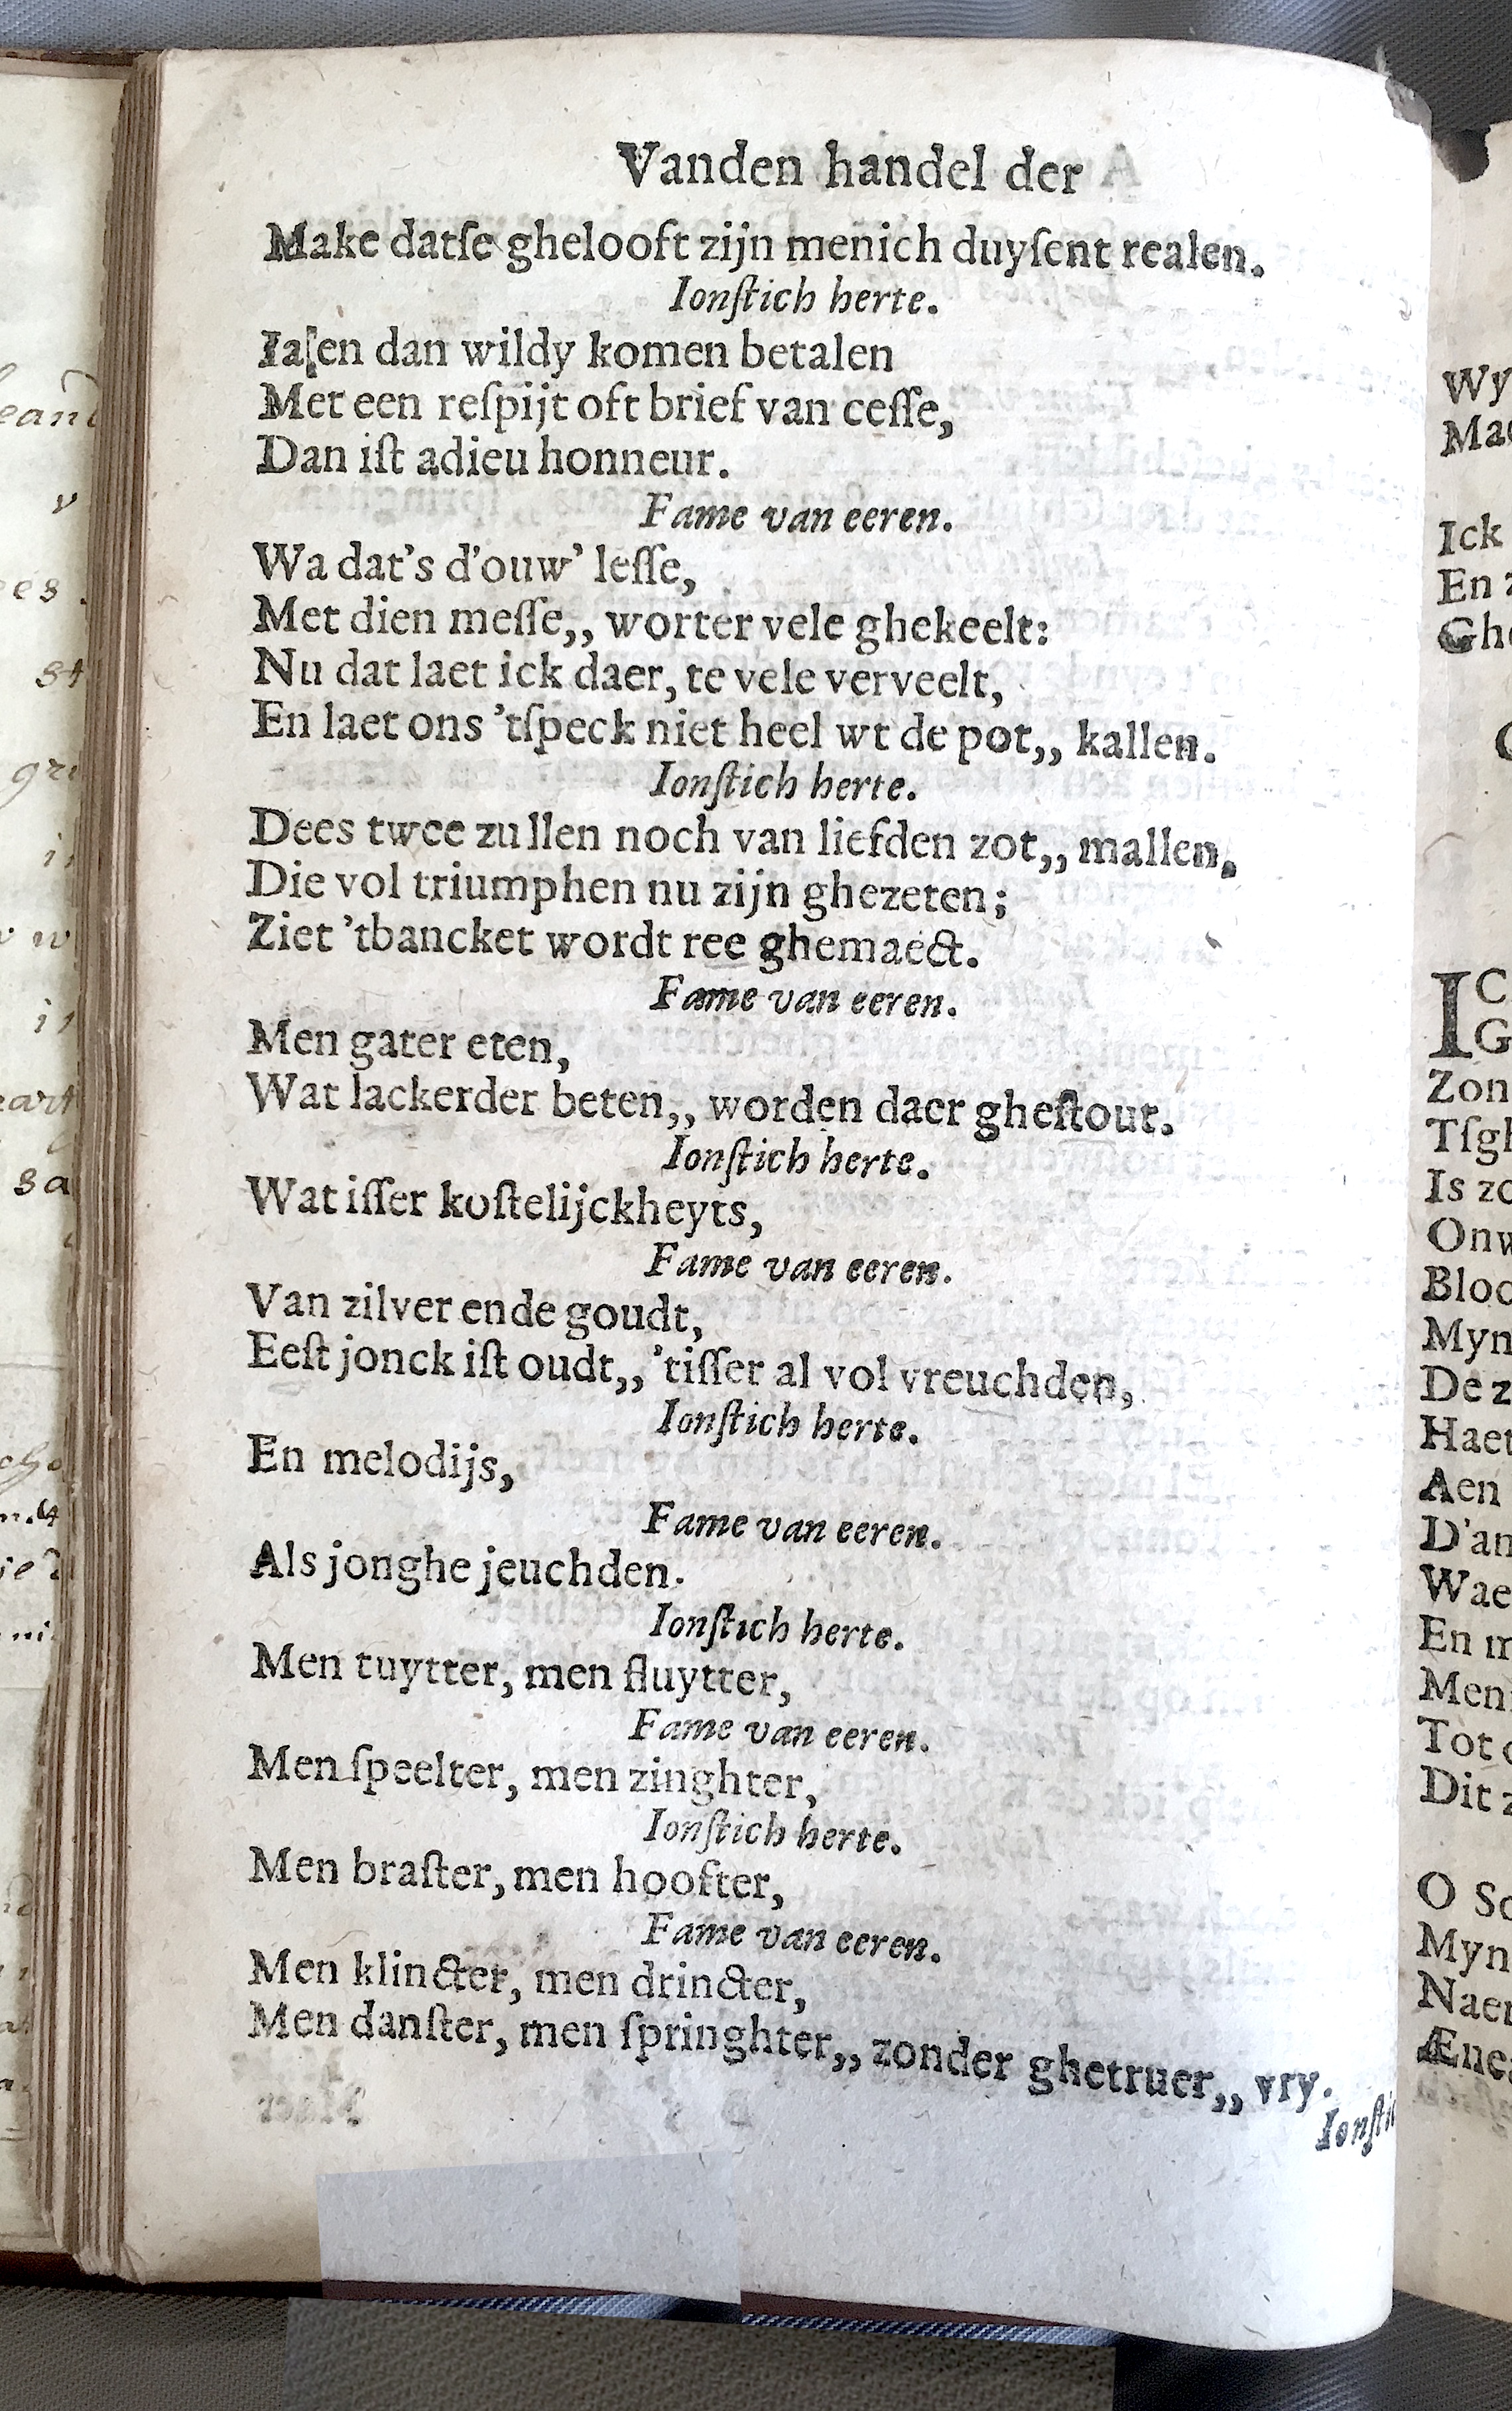 Vanden handel der
Make datſe ghelooft zijn menich duyſent realen.
Ionſtich herte.
Ia en dan wildy komen betalen
Met een reſpijt oft brief van ceſſe,
Dan iſt adieu honneur.
Fame van eeren.
Wa dat's d'ouw' leſſe,
Met dien meſſe,, worter vele ghekeelt:
Nu dat laet ick daer, te vele verveelt,
En laet ons 'tſpeck niet heel wt de pot,, kallen.
Ionſtich herte.
Dees twee zullen noch van liefden zot,, mallen,
Die vol triumphen nu zijn ghezeten;
Ziet 'tbancket wordt ree ghemaect.
Fame van eeren.
Men gater eten,
Wat lackerder beten,, worden daer gheſtout.
Ionſtich herte.
Wat iſſer koſtelijckheyts,
Fame van eeren.
Van zilver ende goudt,
Eeſt jonck iſt oudt,, 'tiſſer al vol vreuchden,
Ionſtich herte.
En melodijs,
Fame van eeren.
Als jonghe jeuchden.
Ionſtich herte.
Men tuytter, men fluytter,
Fame van eeren.
Men ſpeelter, men zinghter,
Ionſtich herte.
Men braſter, men hoofter,
Fame van eeren.
Men klincter, men drincter,
Men danſter, men ſpringhter,, zonder ghetruer,, vry.
Ionſti
Wy
Ick
En
Zon
Is
Myn
De
Aen
En
Men
Tot
Dit
O
Myn